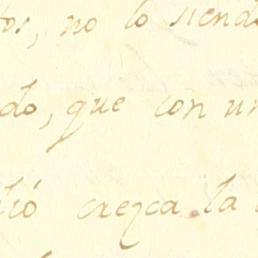 tos, no lo siendo
do, que con un
dió crezca la